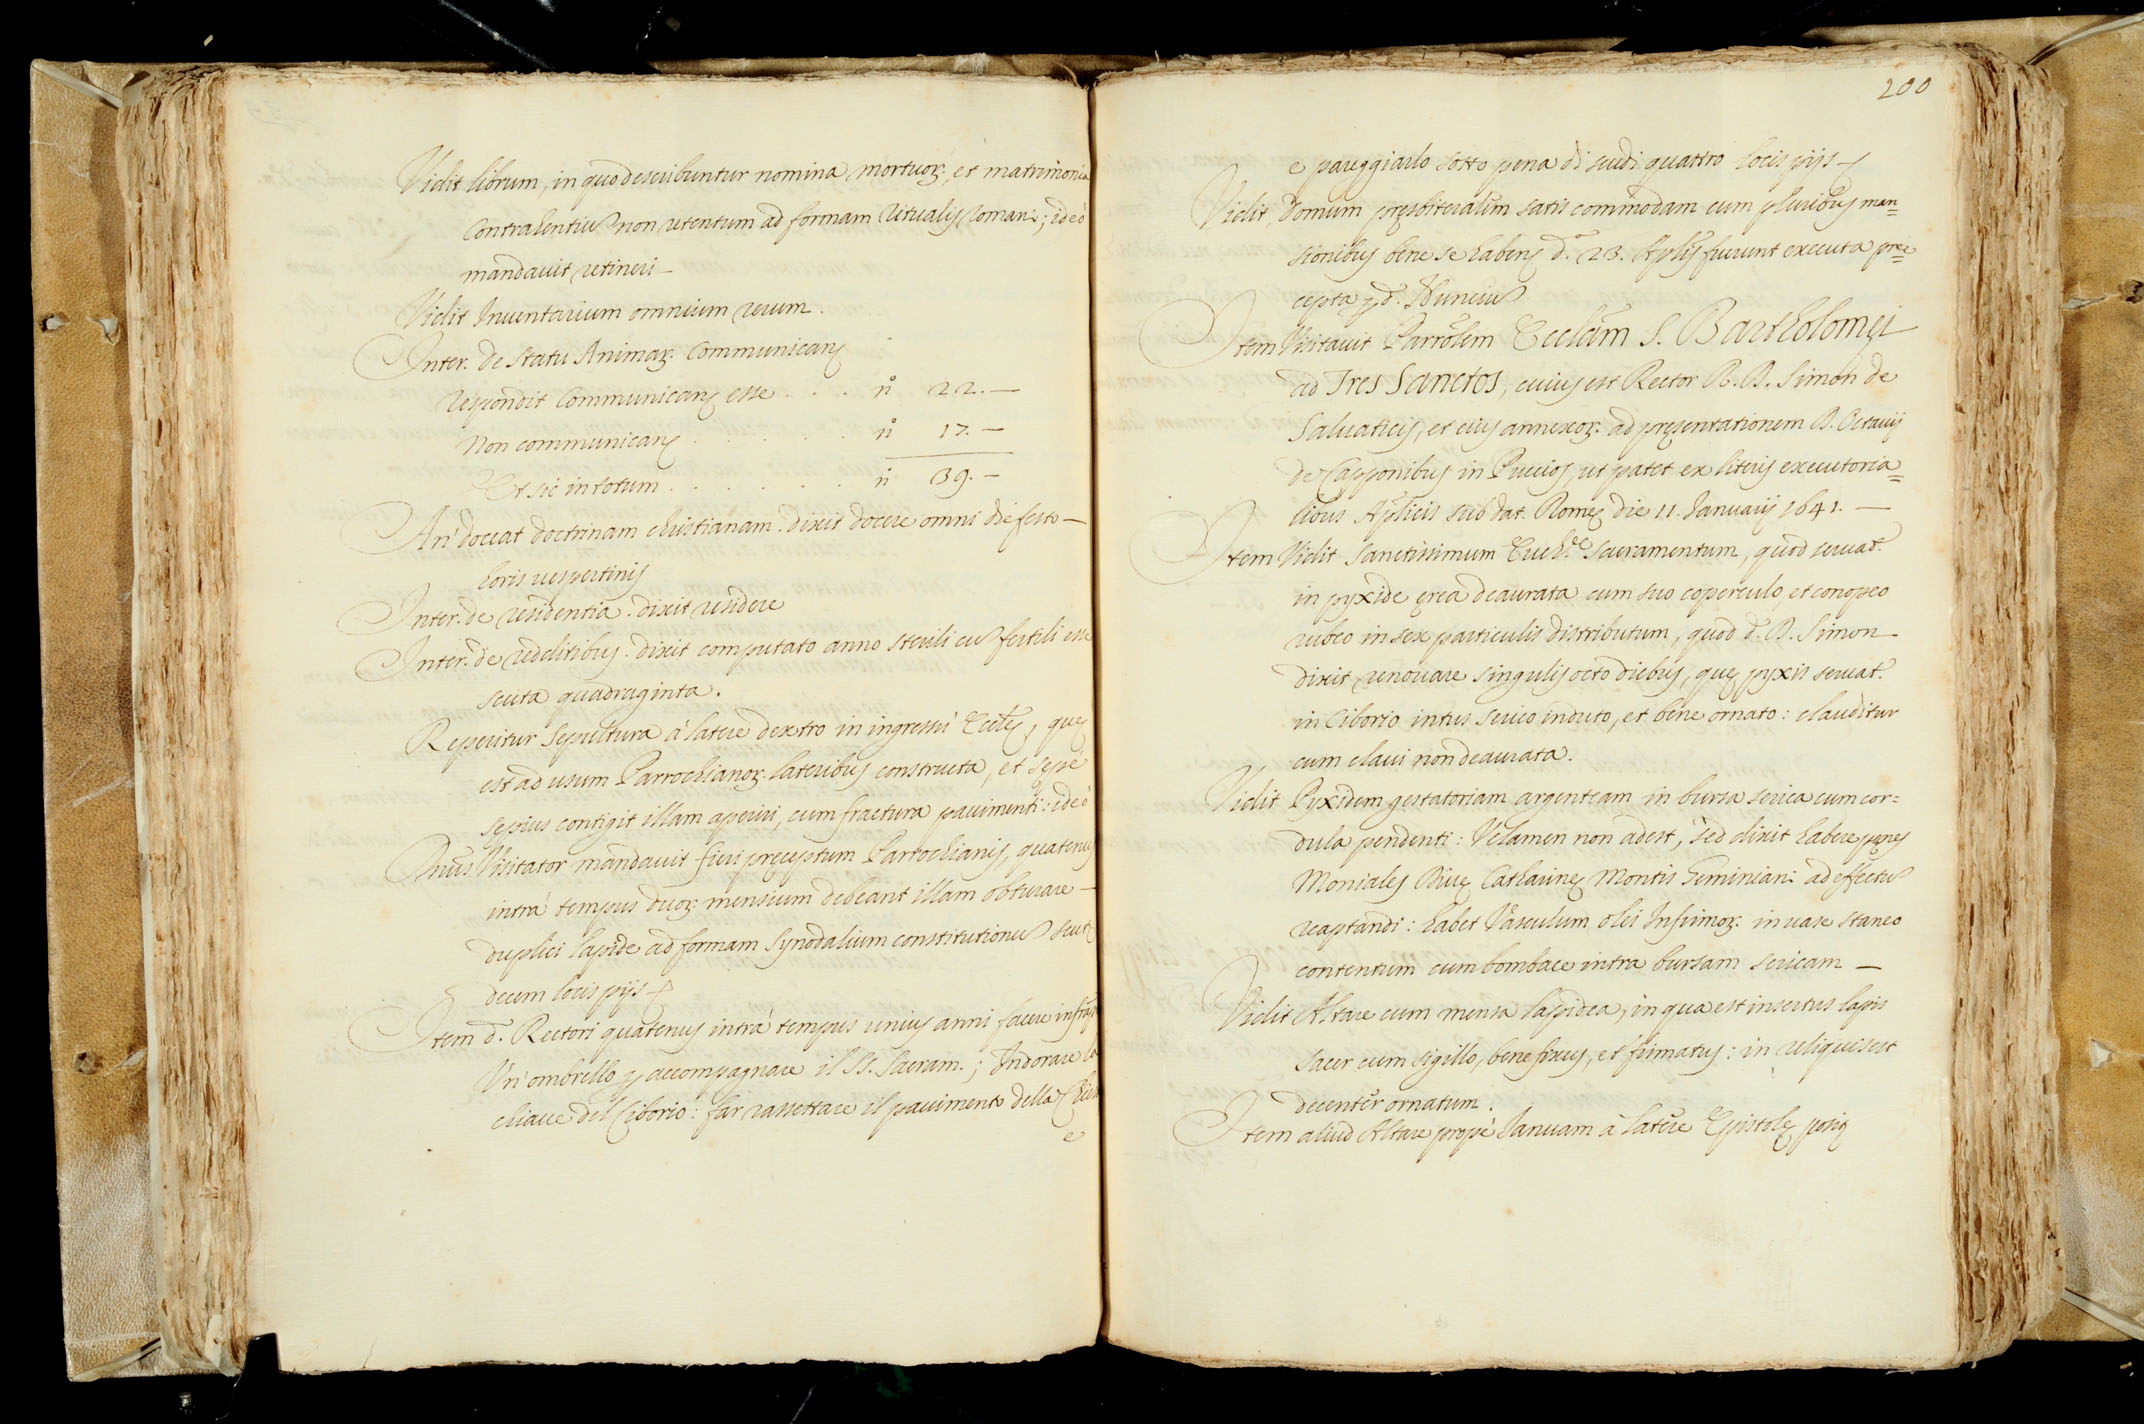 Vidit librum, in quo describuntur nomina mortuoꝝ: et matrimonia
contrahentiũ non utentum ad formam Ritualis Romani; ideò
mandauit retineri –
Vidit Inuentarium omnium rerum.
Inter. de statu Animaꝝ. communicanꝭ
respondit communicanꝭ esse . . . . n° 22. –
Non communicanꝭ . . . . . n° 17. –
Et sic in totum . . . . . . n 39. –
An' doceat doctrinam christianam. dixit docere omni die festo –
horis uespertinis
Inter. de residentia. dixit residere
Inter. de redditibus. dixit computato anno sterili cũ fertili esse
scuta quadraginta.
Reperitur sepultura à latere dextro in ingressu Ecclę, quę
est ad usum Parrochianoꝝ. lateribus constructa, et sępè
sępius contigit illam aperiri, cum fractura pauimenti: ideò
Dnus Visitator mandauit fieri pręceptum Parrochianis, quatenus
intrà tempus duoꝝ mensium debeant illam obturare –
duplici lapide ad formam synodalium constitutionũ scut
decem locis pijs –
Item d. Rectori quatenus intrà tempus unius anni facere infrãpta
Un' ombrello ꝑ accompagnare il SS. Sacram.; Indorare la
chiaue del Ciborio: far rassettare il pauimento della Chiesa
e
200
e pareggiarlo sotto pena di scudi quattro locis pijs –
Vidit Domum pręsbiteralem satis commodam cum pluribus man=
sionibus bene se habens d. 23. Aplis fuerunt executa prę=
cepta ꝑ d. Nunciũ
Item Visitauit Parrolem Ecclãm S. Bartholomęi
ad Tres Sanctos, cuius est Rector R. D. Simon de
Saluaticis, et eius annexoꝝ. ad pręsentationem D. Octauij
de Capponibus in Puccios, ut patet ex literis executoria=
libus Aplicis sub dat. Romę die 11. Januarij 1641. –
Item Vidit sanctissimum Euch.ę Sacramentum, quod seruat.
in pyxide ęrea deaurata cum suo coperculo, et conopeo
rubeo in sex particulis distributum, quod d. D. Simon –
dixit renouare singulis octo diebus, quę pyxis seruat.
in Ciborio intus serico induto, et bene ornato: clauditur
cum claui non deaurata.
Vidit Pyxidem gestatoriam argenteam in bursa serica cum cor=
dula pendenti: Velamen non adest, sed dixit habere penes
Moniales Diuę Catharinę Montis Geminiani ad effectũ
reaptandi: habet Vasculum olei Infirmoꝝ. in uase staneo
contentum cum bombace intra bursam sericam –
Vidit Altare cum mensa lapidea, in qua est insertus lapis
sacer cum sigillo, bene fixus, et firmatus: in reliquis est
decenter ornatum.
Item aliud Altare propè Januam à latere Epistolę